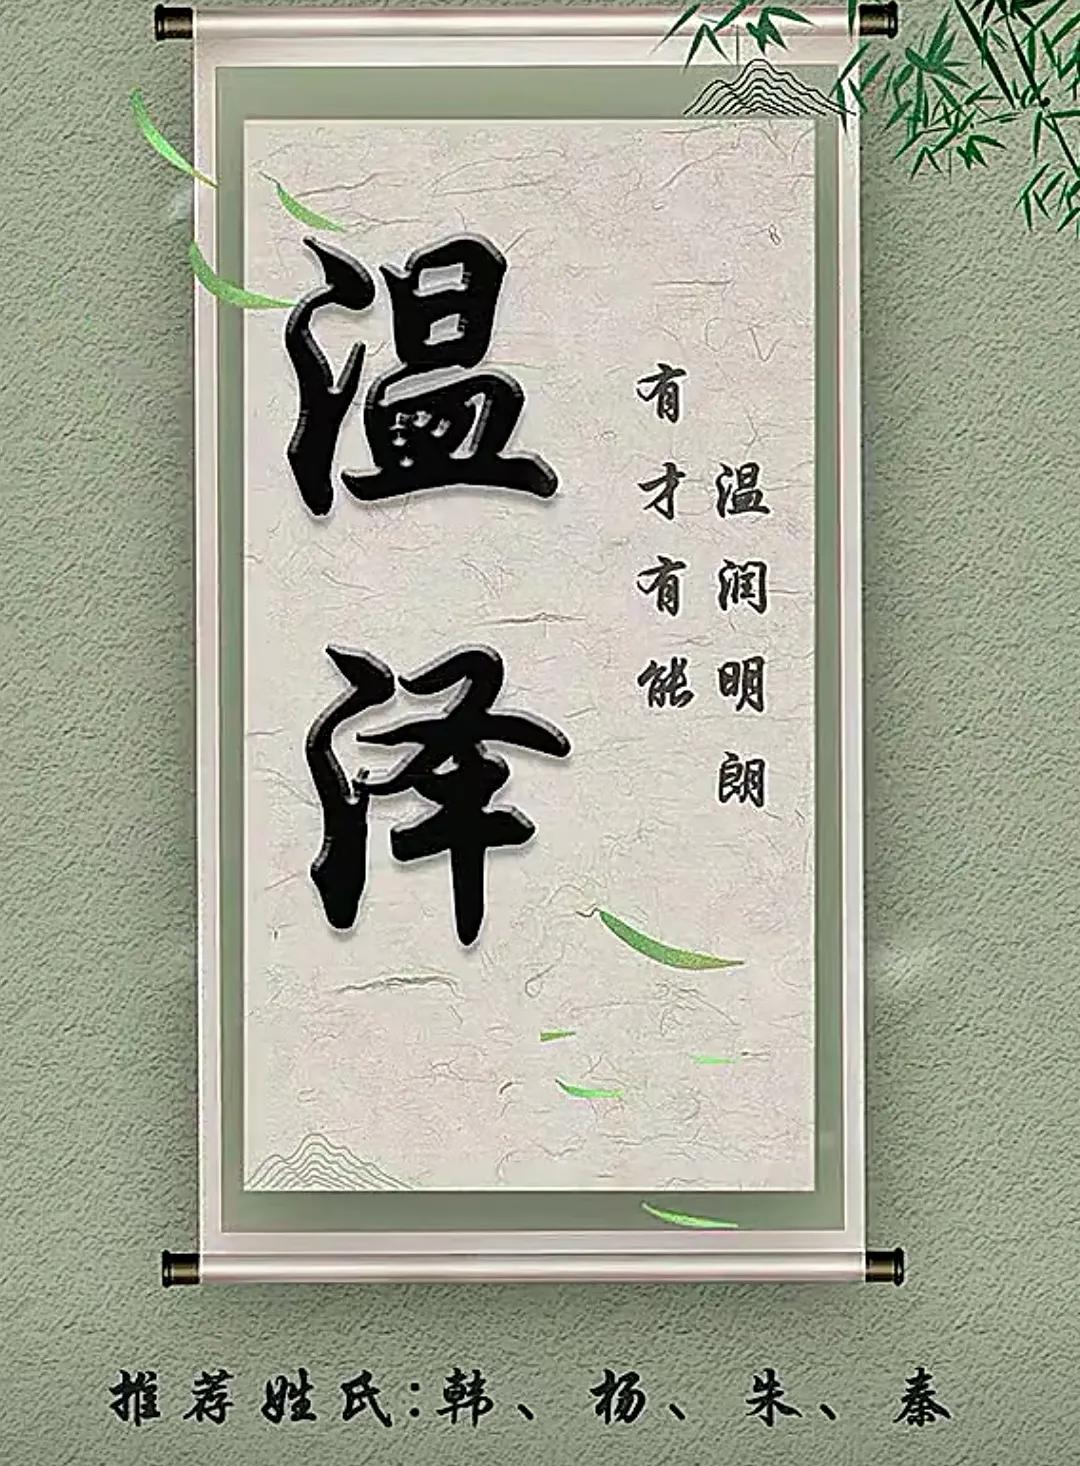 温泽
温润明朗
有才有能
推荐姓氏:韩、杨、朱、秦